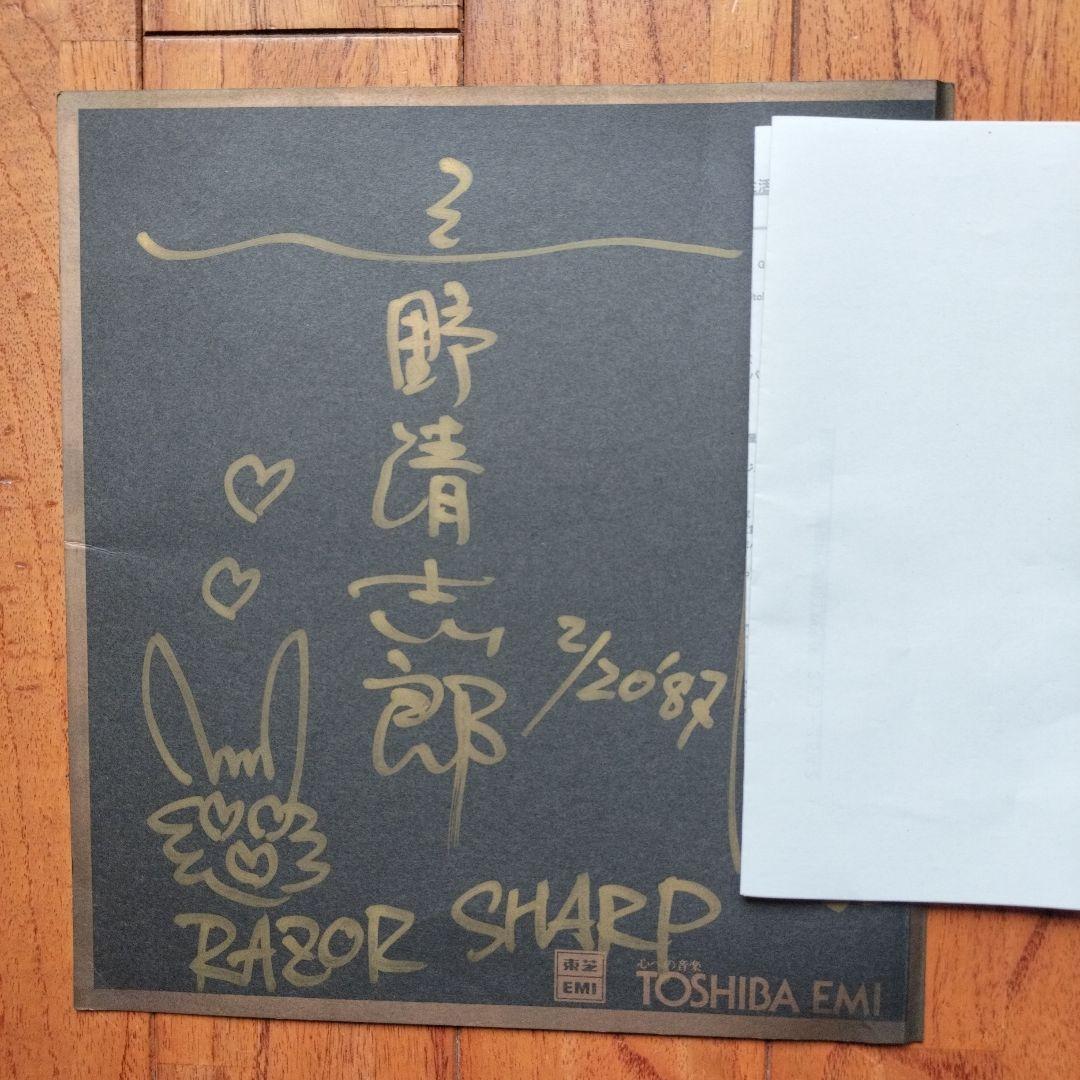 忌野清志郎
2/20'87
RAZOR SHARP
東芝
EMI
心への音楽
TOSHIBA EMI